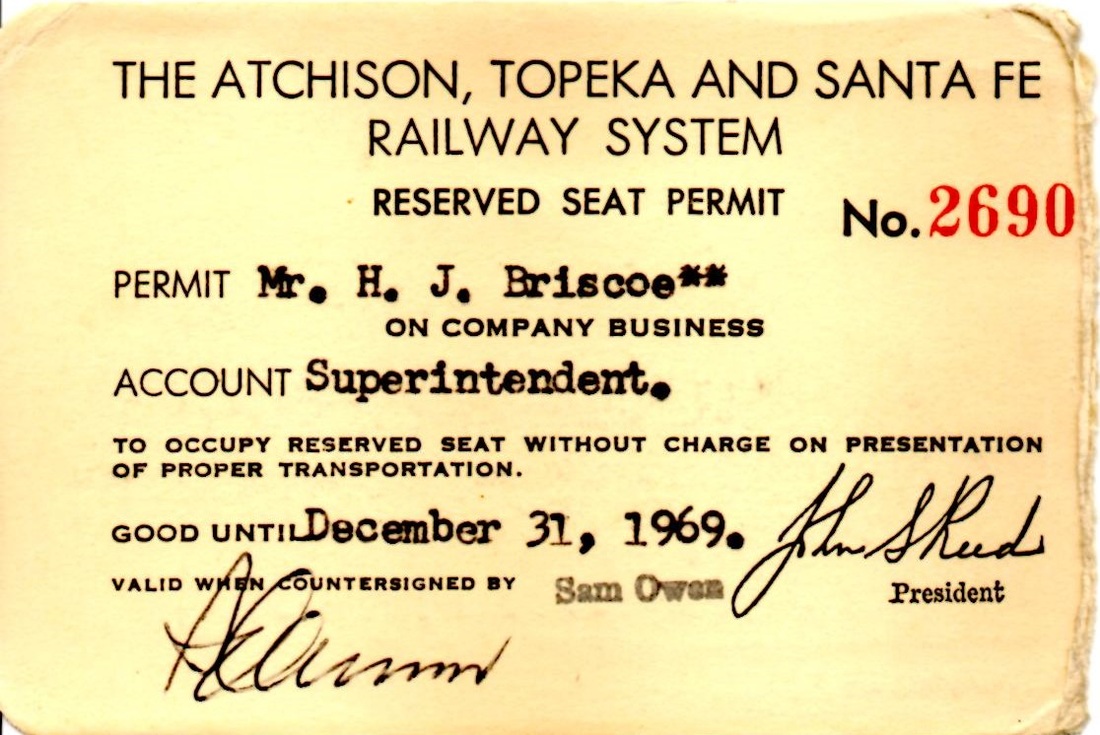 THE ATCHISON, TOPEKA AND SANTA FE
RAILWAY SYSTEM
RESERVED SEAT PERMIT
No. 2690
PERMIT Mr. H. J. Briscoe**
ON COMPANY BUSINESS
ACCOUNT Superintendent.
TO OCCUPY RESERVED SEAT WITHOUT CHARGE ON PRESENTATION
OF PROPER TRANSPORTATION.
GOOD UNTIL December 31, 1969.
John S Reed
VALID WHEN COUNTERSIGNED BY Sam Owen
President